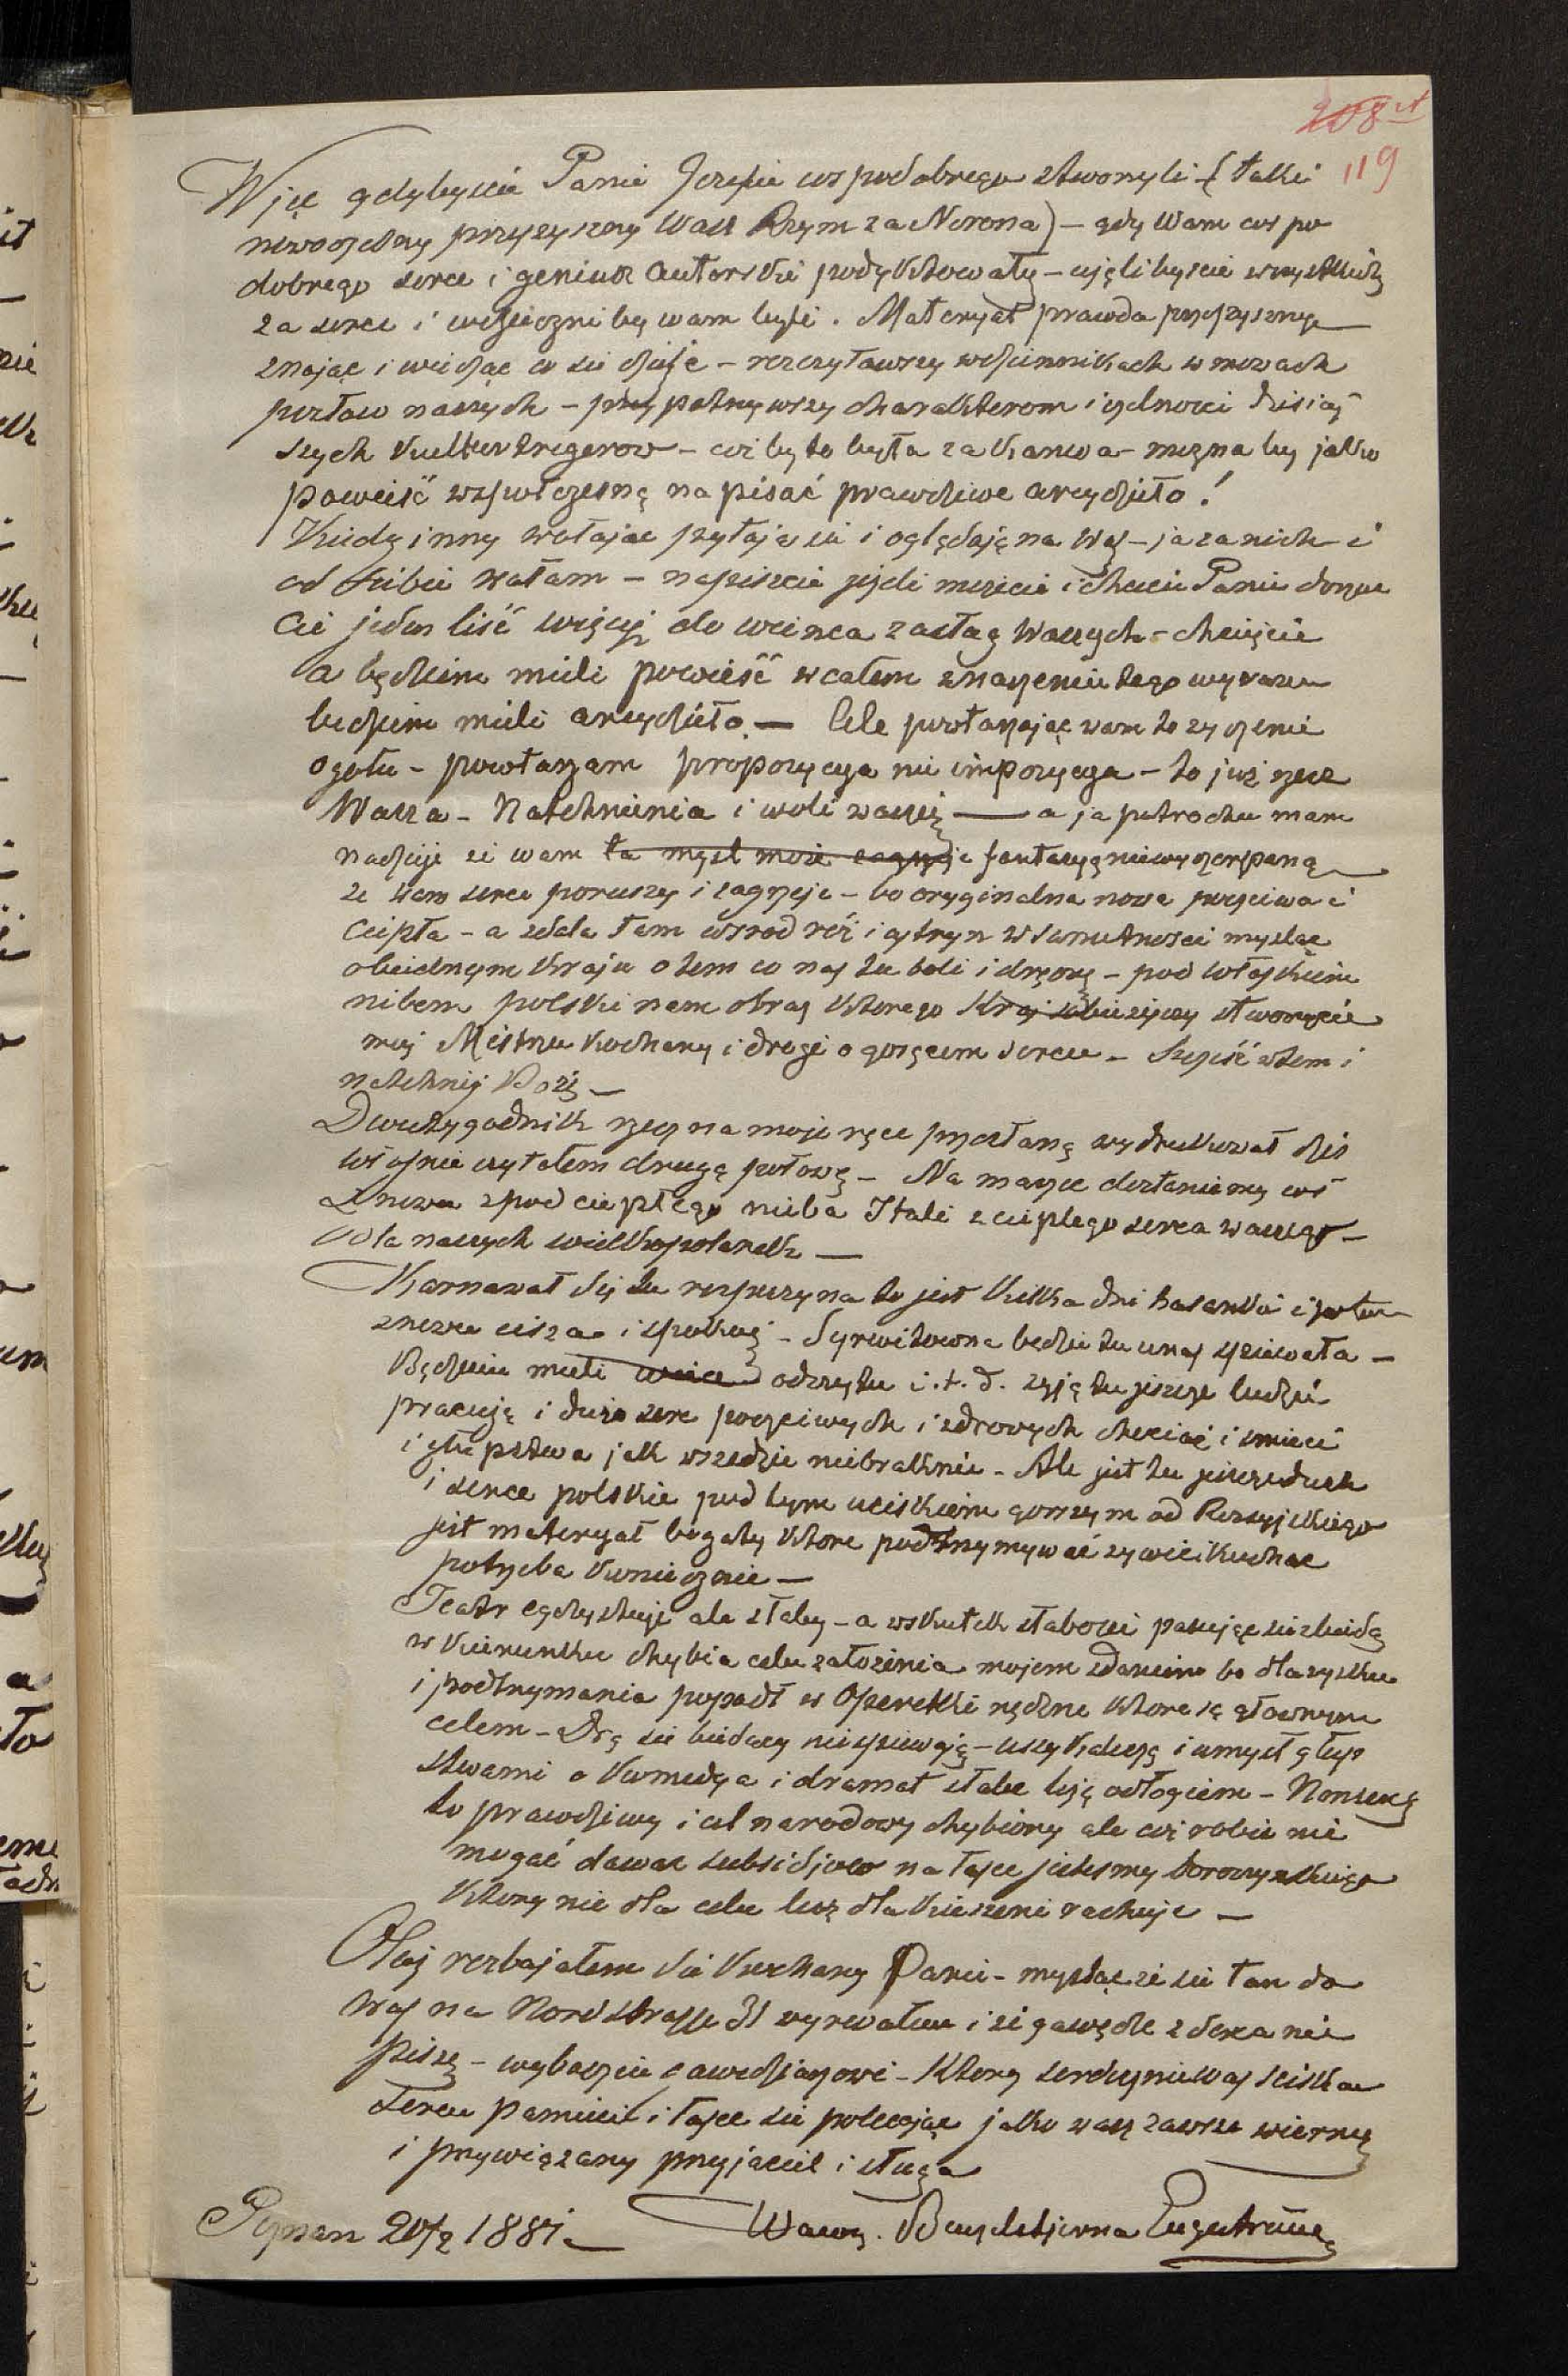 208 et
119
Więc gdybyście Panie Jozefie cos podobrego stworzyli - (taki
nowoczesny przyszyszny Wasz Rzym za Nerona) - gdy Wam cos po
dobrego serce i geniusz autorski podyktowały - ujęlibyscie wszystkich
za serce i wdzieczni by wam byli. Materyał prawda
znając i widząc co sie dzieje - rozczytawszy w dziennikach w mowach
posłow naszych - przypatrzywszy charakterom i zdnosci dzisiaj
szych Kulturtregerow - coż by to była za kanwa - mozna by jako
powieść wspułczesną napisać prawdziwe arcydzieło!
Kiedy inny wołając pytają sie i oglądają na Was - ja za nich i
od siebie wołam - napiszcie jeżeli mozecie i chcecie Panie dorzu
cie jeden liść więcej do wienca zasług Waszych - chciejcie
a będziem mieli powieść w całem znaczeniu tego wyrazu
bedziem mieli arcydzieło. — Ale powtarzając wam to zyczenie
ogołu - powtarzam propozycya nie impozycya - to już rzecz
Wasza - Natchnienia i woli waszej — a ja potrochu mam
nadzieje ze wam ta mysl może zagrzeje fantazyą niewyczerpaną
ze wam serce poruszy i zagrzeje - bo oryginalna nowa poczciwa i
ciepła - a zdala tam wsrod róż i cytryn w samotnosci mysląc
o biednym kraju o tem co nas tu boli i dręczy - pod włoskiem
niebem polski nam obraz ktorego Kraj sobie zyczy stworzycie
moj Mistrzu kochany i drogi o gorącem sercu - Szczęść w tem i
natchnij Boże —
Dwutygodnik rzecz na moje ręce przysłaną wydrukował dziś
właśnie czytałem drugą połowę - Na marzec dostaniemy coś
znowu z pod ciepłego nieba Itali z ciepłego serca waszego -
dla naszych wielkopolanek —
Karnawał się tu rozpoczyna to jest kilka dni hasanki i potem
znowu cisza i spokoj - Syrwitowna będzie tu u nas spiewała -
Będziem mieli wiece odczyta i.t.d. zyją tu jeszcze ludzie
pracują i dużo serc poczciwych i zdrowych chociaż i smieci
i głupstwa jak wszedzie niebraknie - Ale jest tu jeszcze duch
i serce polskie pod tym uciskiem gorszym od Rossyjskiego
jest materyał bogaty ktore podtrzymywać zywić i kochac
potrzeba koniecznie —
Teatr egzystuje ale słaby - a wskutek słabosci pasując sie z biedą
w kierunku chybia celu założenia mojem zdaniem bo dla zysku
i podtrzymania popadł w Operetki nędzne ktore są głownym
celem - Drą sie biedacy nie spiewają - uszy kaleczą i umysł głup
stwami a Komedya i dramat słabe leżą odłogiem - Nonsens
to prawdziwy i cel narodowy chybiony ale coż robic nie
mogąc dawac subsidjow na łasce jestesmy
ktory nie dla celu lecz dla kieszeni rachuje —
Otoż rozbajałem sie kochany Panie - mysląc ze sie tam do
Was na Nordstrasse 31 wyrwałem i ze gawędze z serca nie
piszę - wybaczcie gawedziarzowi - ktory serdecznie Was sciska
sercu pamieci i łasce sie polecając jako wasz zawsze wierny
i przywiązany przyjaciel i sługa
Poznan 20/2 1881.
Wawrz. Benzelstjerna Engeström